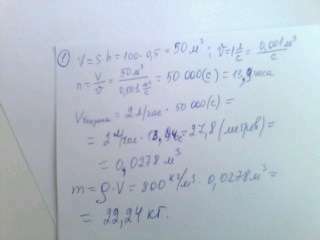 ① V = S h = 100 · 0,5 = 50 м³ ; v = 1 л/с = 0,001 м³/с
n = V/v = 50 м³ / 0,001 м³/с = 50 000 (с) = 13,9 часа
Vбензина = 2 л/час · 50 000 (с) =
= 2 л/час · 13,9 ч = 27,8 (литров) =
= 0,0278 м³
m = ρ · V = 800 кг/м³ · 0,0278 м³ =
= 22,24 кг.